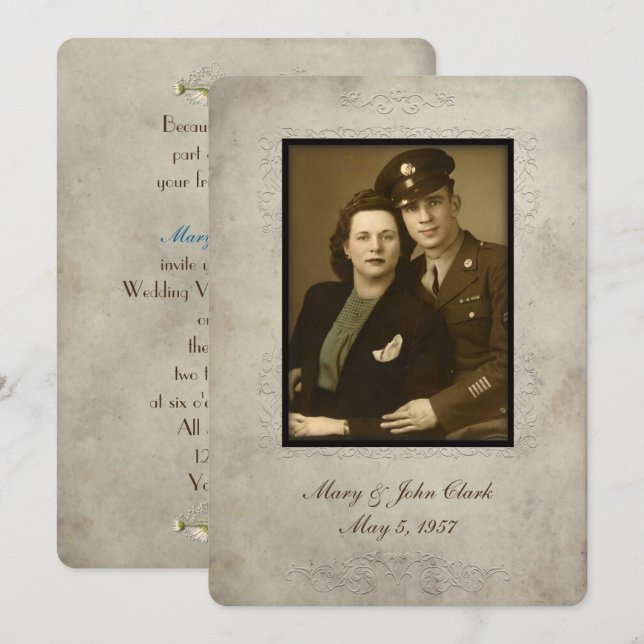 Becau
part
your fr
Mary
invite
Wedding V
on
the
two t
at six o'c
All
12
Yo
Mary & John Clark
May 5, 1957